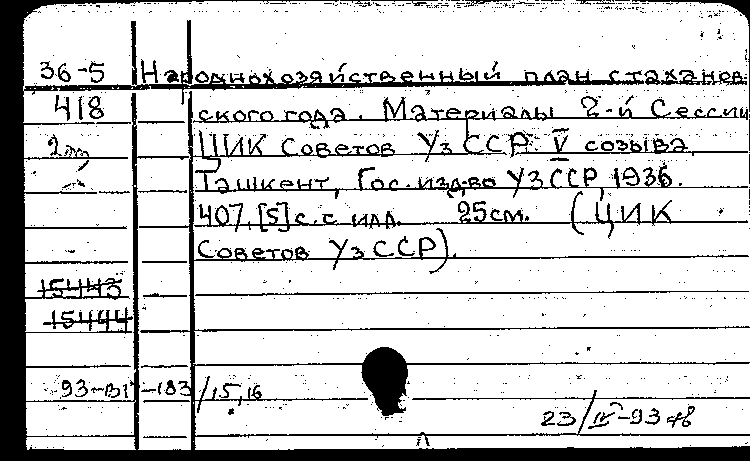 36-5 Народнохозяйственный план стаханов
418 ского года. Материалы 2-й Сессии
2 ЦИК Советов УзССР. V созыва.
Ташкент, Гос. изд-во УзССР, 1936.
407, [5] с. с илл. 25см. (ЦИК
Советов УзССР).
15443
15444
93-В1 -183/15,16
23/IV-93